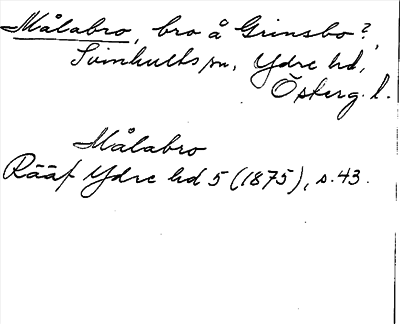 Målabro, bro å Grinsbo?,
Svinhults sn, Ydre hd,
Österg. l.
Målabro
Rääf Ydre hd 5 (1875), s. 43.